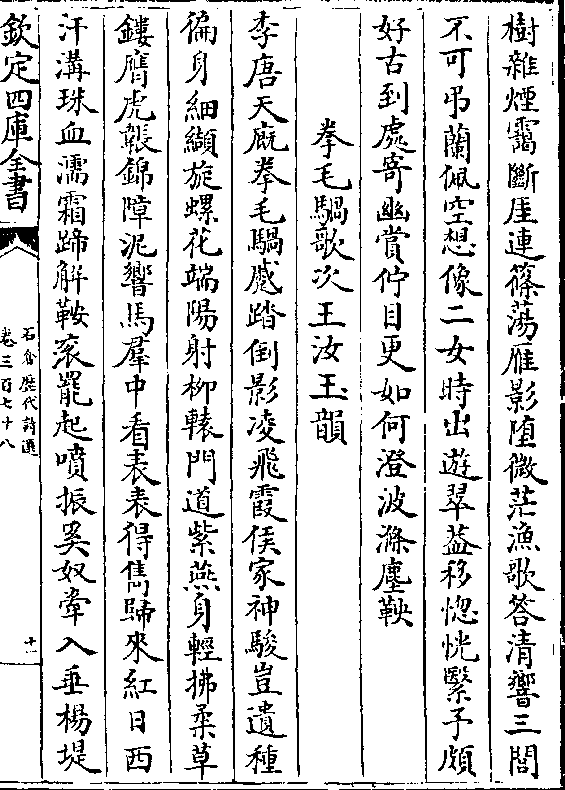 樹雜煙靄斷厓連篠蕩雁影墮微茫漁歌答清響三閭
不可弔蘭佩空想像二女時出遊翠蓋移惚恍繄予頗
好古到處寄幽賞佇目更如何澄波滌塵鞅
拳毛騧歌次王汝玉韻
李唐天厩拳毛騧蹙踏倒影凌飛霞侯家神駿豈遺種
徧身細纈旋螺花端陽射柳轅門道紫燕身輕拂柔草
鏤膺虎韔錦障泥響馬羣中看表表得雋歸來紅日西
汗溝珠血濡霜蹄解鞍衮罷起噴振奚奴牽入垂楊堤
欽定四庫全書
石倉歷代詩選
卷三百七十八
十一